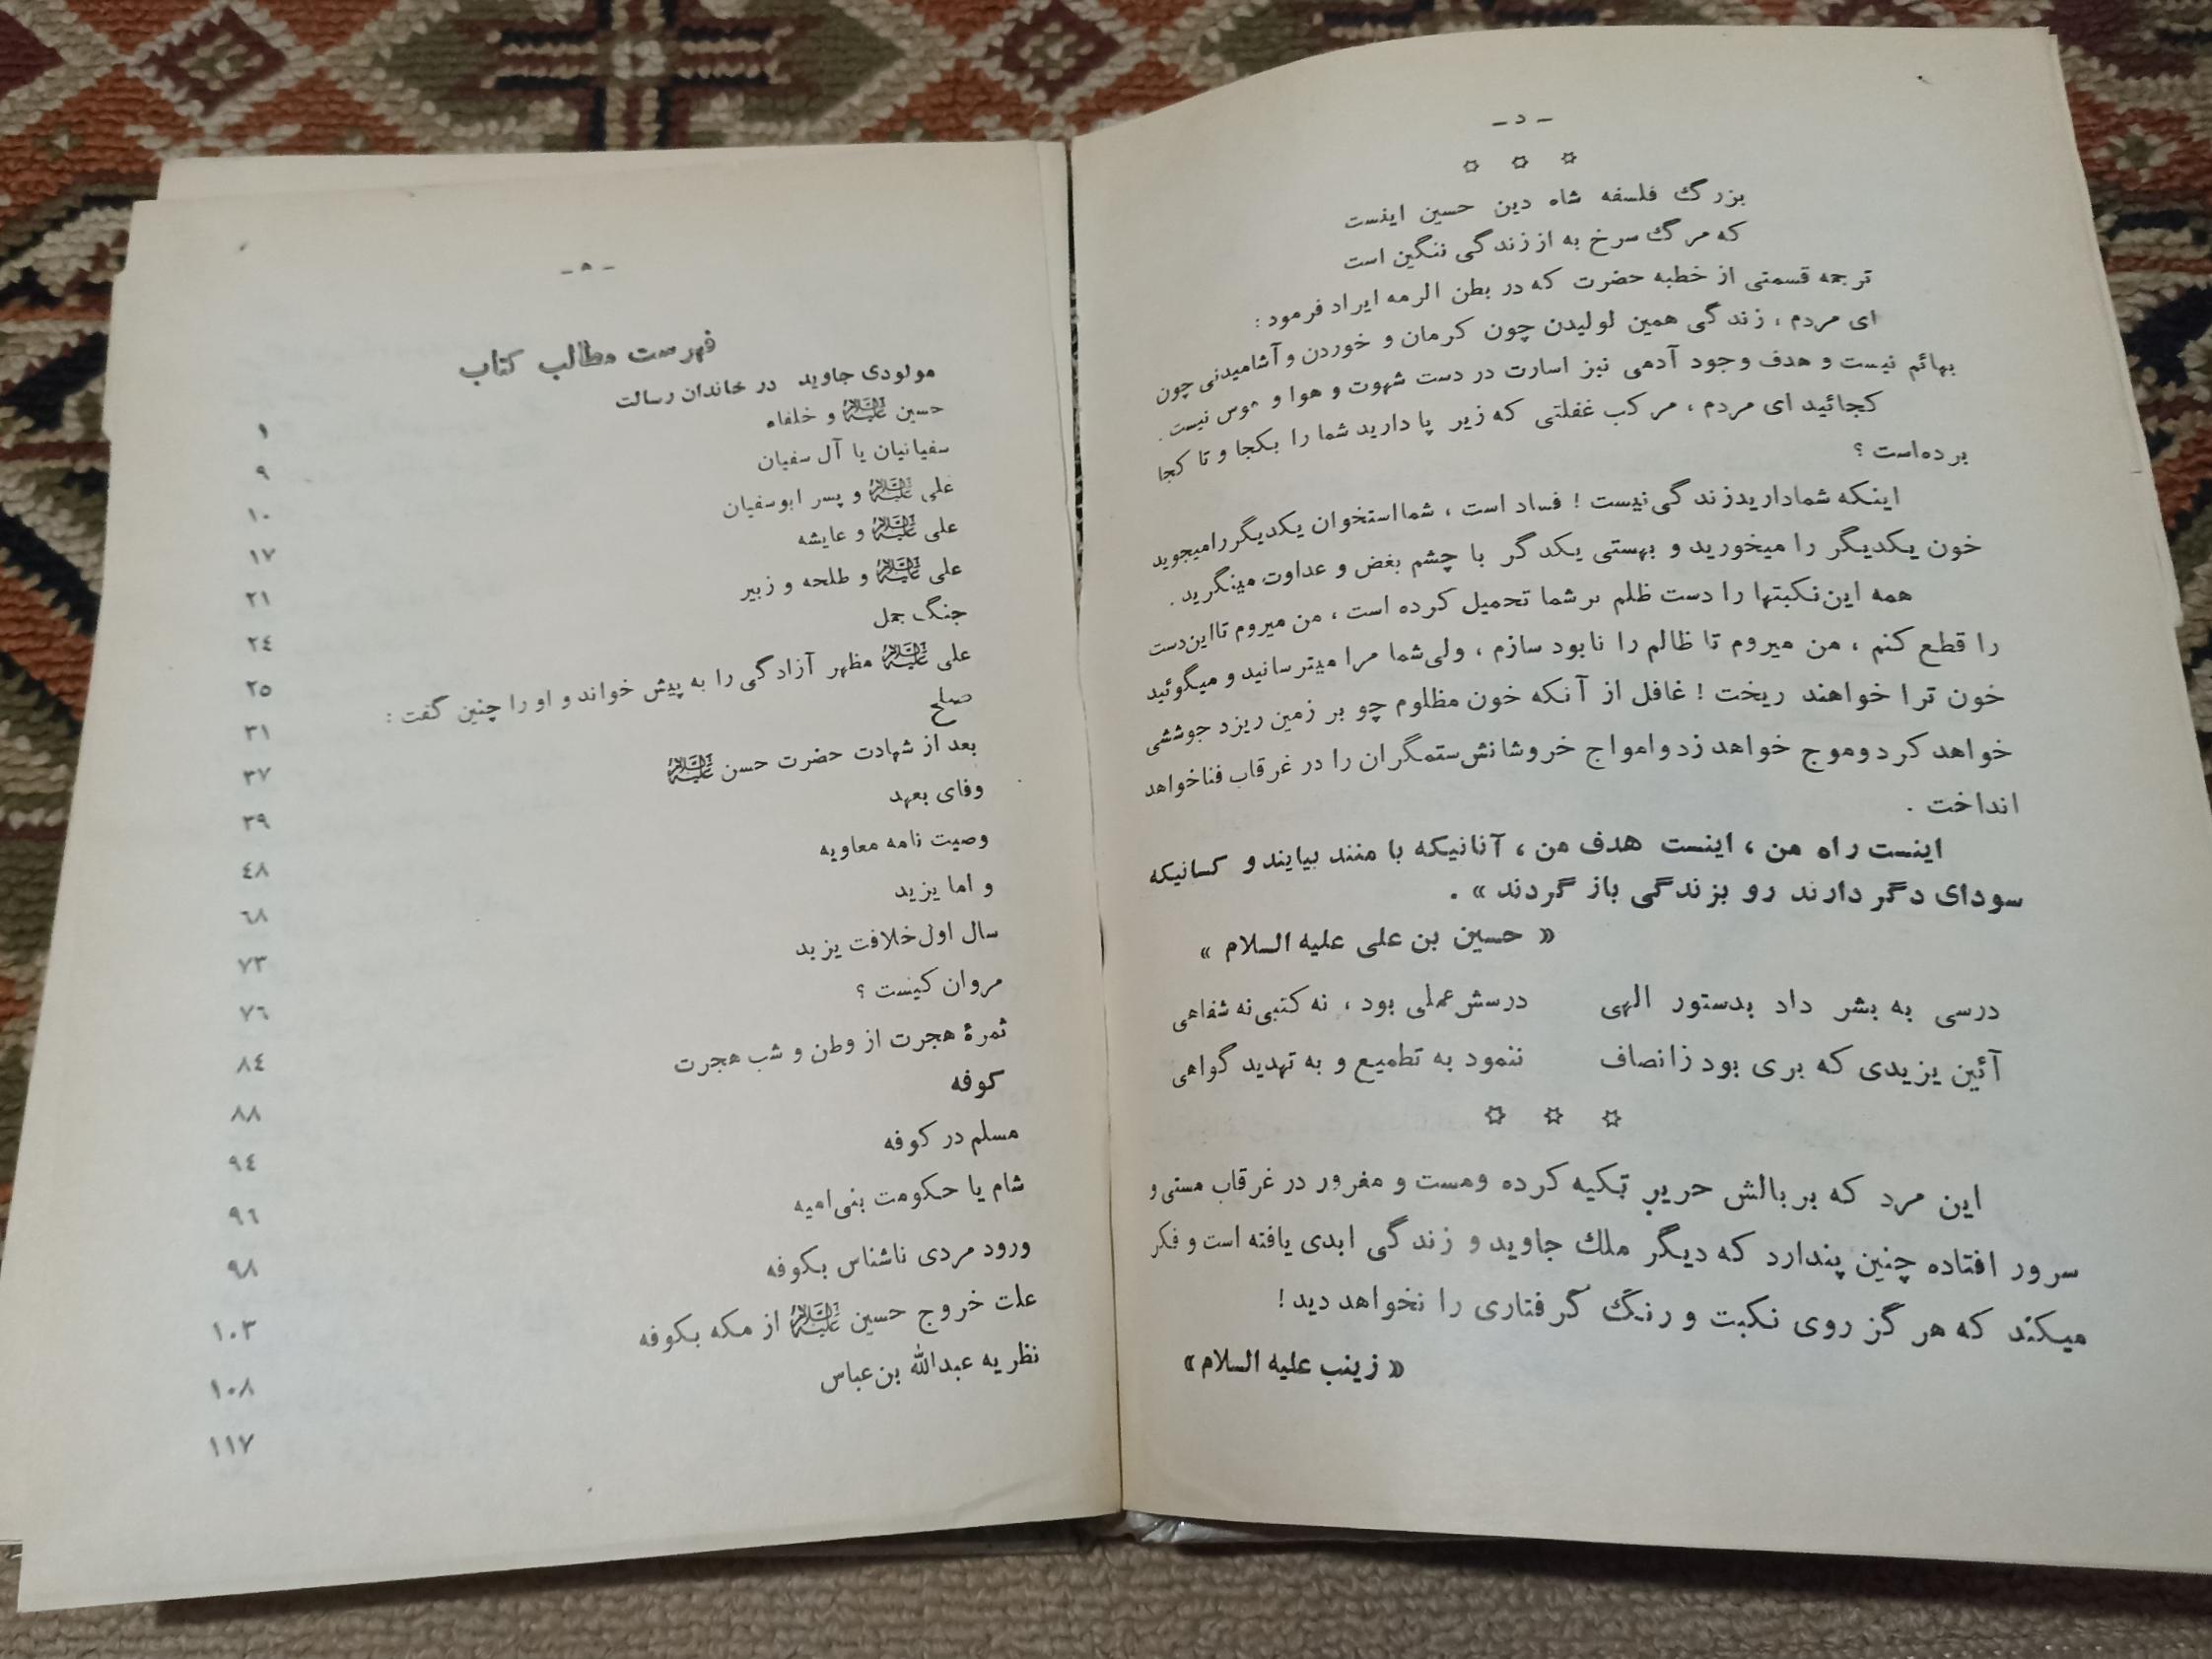 - د -
بزرگ فلسفه شاه دین حسین اینست
که مرگ سرخ به از زندگی ننگین است
ترجمه قسمتی از خطبه حضرت که در بطن الرمه ایراد فرمود :
ای مردم ، زندگی همین لولیدن چون کرمان و خوردن و آشامیدنی چون
بهائم نیست و هدف وجود آدمی نیز اسارت در دست شهوت و هوا و هوس نیست .
کجائید ای مردم ، مرکب غفلتی که زیر پا دارید شما را بکجا و تا کجا
برده‌است ؟
اینکه شما دارید زندگی نیست ! فساد است ، شما استخوان یکدیگر را میجوید
خون یکدیگر را میخورید و بهستی یکدگر با چشم بغض و عداوت مینگرید .
همه این نکبتها را دست ظلم بر شما تحمیل کرده است ، من میروم تا این دست
را قطع کنم ، من میروم تا ظالم را نابود سازم ، ولی شما مرا میترسانید و میگوئید
خون ترا خواهند ریخت ! غافل از آنکه خون مظلوم چو بر زمین ریزد جوششی
خواهد کرد وموج خواهد زد وامواج خروشانش ستمگران را در غرقاب فنا خواهد
انداخت .
اینست راه من ، اینست هدف من ، آنانیکه با منند بیایند و کسانیکه
سودای دگر دارند رو بزندگی باز گردند » .
« حسین بن علی علیه السلام »
درسی به بشر داد بدستور الهی درسش عملی بود ، نه کتبی نه شفاهی
آئین یزیدی که بری بود ز انصاف ننمود به تطمیع و به تهدید گواهی
این مرد که بر بالش حریر تکیه کرده ومست و مغرور در غرقاب مستی و
سرور افتاده چنین پندارد که دیگر ملك جاوید و زندگی ابدی یافته است و فکر
میکند که هرگز روی نکبت و رنگ گرفتاری را نخواهد دید !
« زینب علیه السلام »
- ه -
فهرست مطالب کتاب
مولودی جاوید در خاندان رسالت ۱
حسین علیه السلام و خلفاء ۹
سفیانیان یا آل سفیان ۱۰
علی علیه السلام و پسر ابوسفیان ۱۷
علی علیه السلام و عایشه ۲۱
علی علیه السلام و طلحه و زبیر ٢٤
جنگ جمل ۲۵
علی علیه السلام مظهر آزادگی را به پیش خواند و او را چنین گفت : ۳۱
صلح ۳۷
بعد از شهادت حضرت حسن علیه السلام ۳۹
وفای بعهد ٤٨
وصیت نامه معاویه ٦٨
و اما یزید ۷۳
سال اول خلافت یزید ٧٦
مروان کیست ؟ ٨٤
ثمرهٔ هجرت از وطن و شب هجرت ۸۸
کوفه ٩٤
مسلم در کوفه ٩٦
شام یا حکومت بنی امیه ۹۸
ورود مردی ناشناس بکوفه ۱۰۳
علت خروج حسین علیه السلام از مکه بکوفه ۱۰۸
نظریه عبدالله بن عباس ۱۱۷